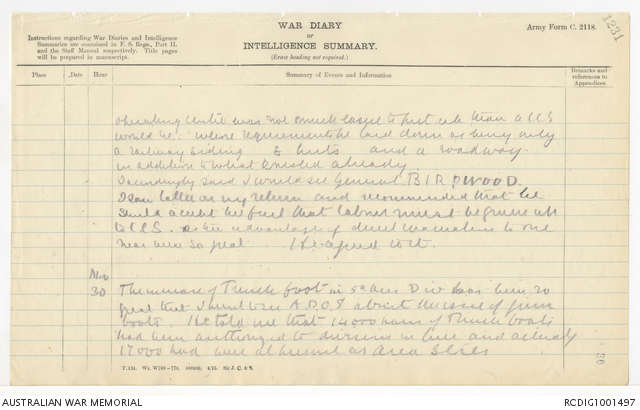 1231
WAR DIARY
OR
INTELLIGENCE SUMMARY.
(Erase heading not required.)
Army Form C. 2118.
Instructions regarding War Diaries and Intelligence
Summaries are contained in F. S. Regs., Part II.
and the Staff Manual respectively. Title pages
will be prepared in manuscript.
Place
Date
Hour
Summary of Events and Information
Remarks and
references to
Appendices
centre was not much easier to than a CCS
would be. requirements he laid down as being only
a railway siding huts and a roadway
in addition to what existed already
I accordingly said I would see General BIRDWOOD.
I saw latter on my return and recommended that he
should accept the fact that labour must be given up
to CCS. advantage of direct evacuation to one
near area so great. He agreed to it.
Nov
30
The increase of Trench foot in 5th Aus Div has been so
great that I went to see A.D.O.S about the issue of gum
boots. He told me that 14000 pairs of Trench boots
had been authorized to divisions in line and actually
17000 had were at present as Area Stores
T.134. Wt. W708—776. 500000. 4/15. Sir J. C. & S.
AUSTRALIAN WAR MEMORIAL
RCDIG1001497